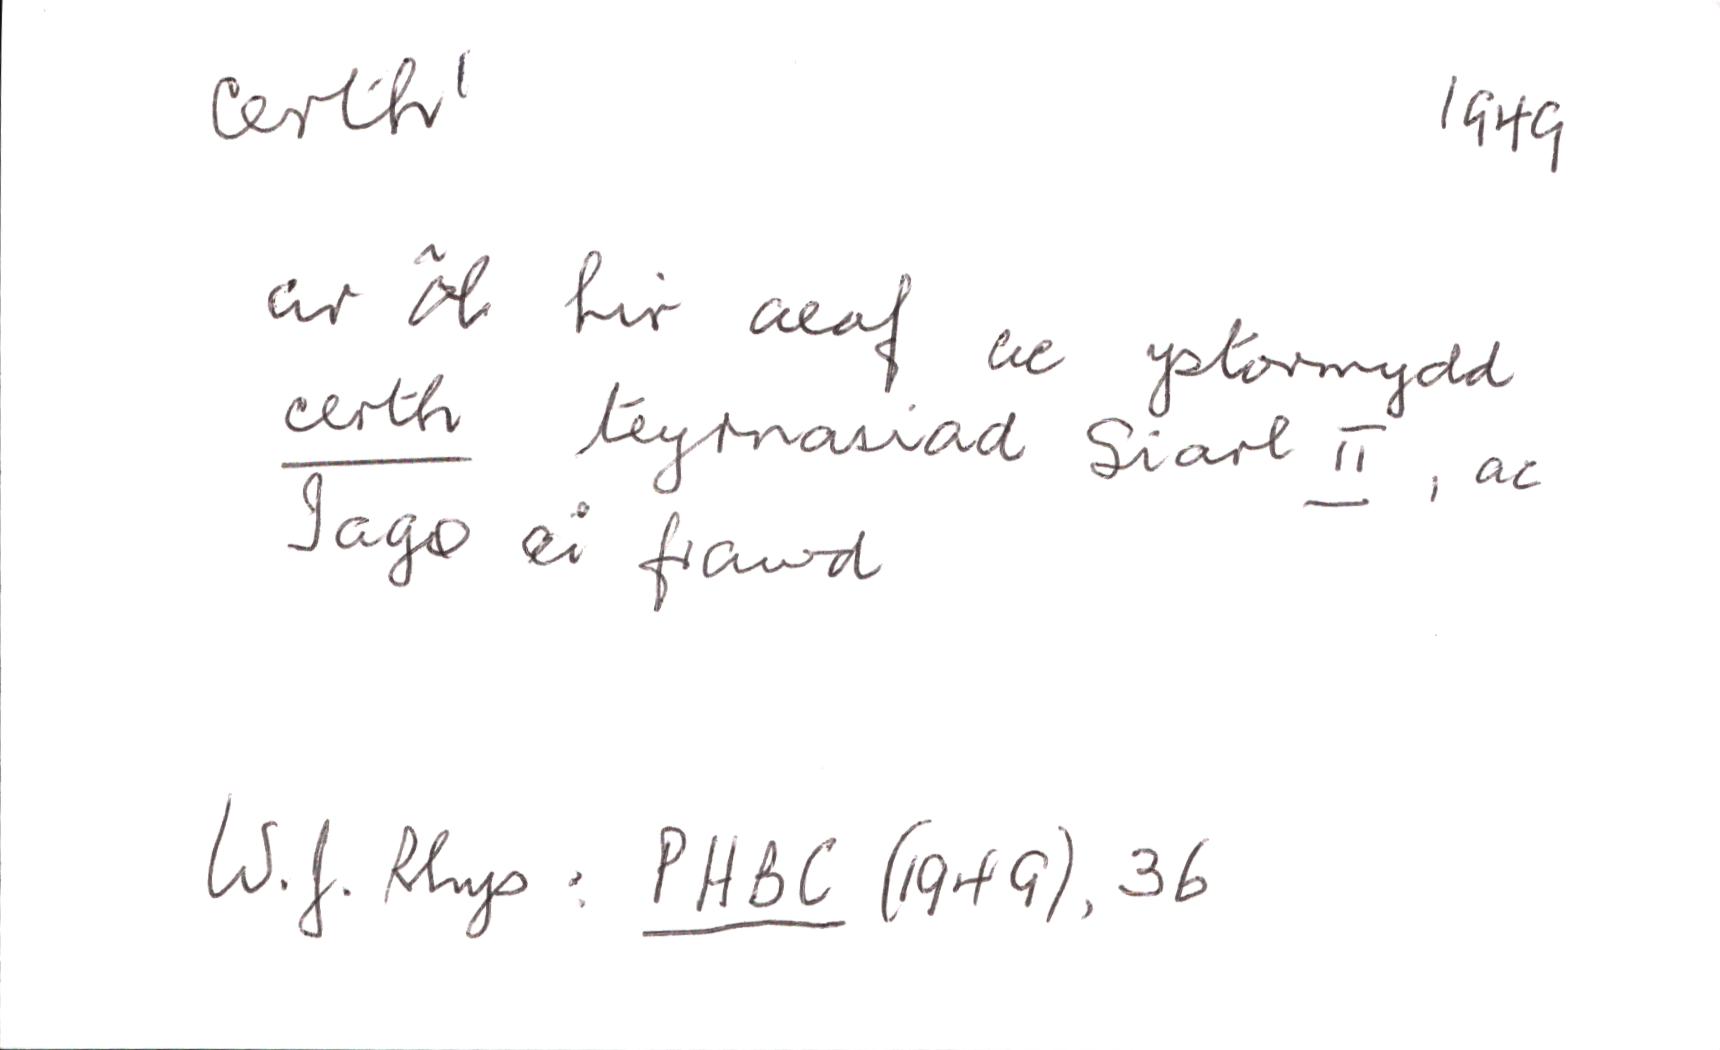 certh¹ 1949
ar ôl hir aeaf ac ystormydd
certh teyrnasiad Siarl II, ac
Iago ei frawd
W.J. Rhys: PHBC (1949), 36